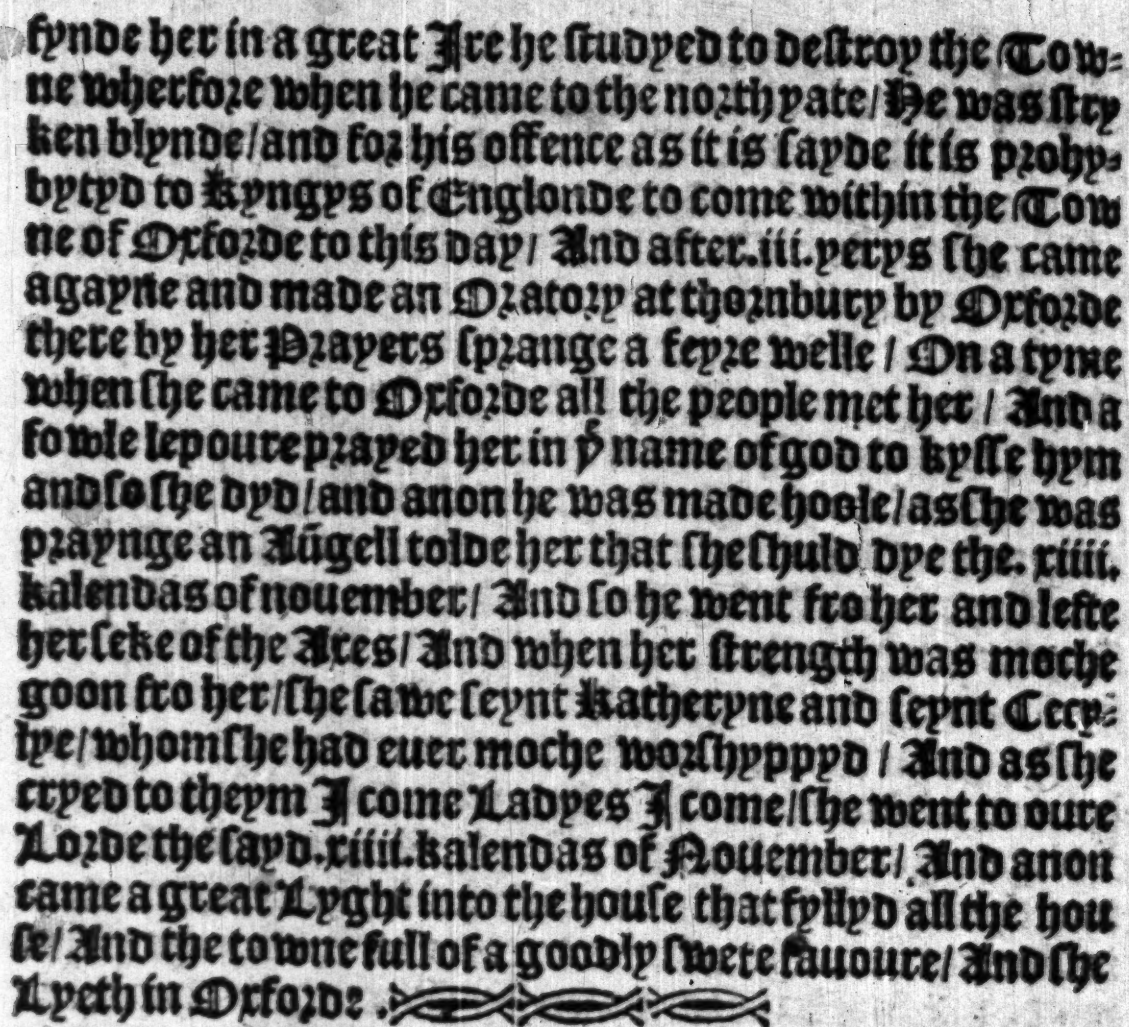 fynde her in a great Ire he ſtudyed to deſtroy the Tow⸗
ne wherfore when he came to the north yate/ He was ſtry
ken blynde/ and for his offence as it is ſayde it is prohy⸗
bytyd to kyngys of Englonde to come within the Tow
ne of Oxforde to this day/ And after .iii. yerys ſhe came
agayne and made an Oratory at thornbury by Oxforde
there by her Prayers ſprange a feyre welle / On a tyme
when ſhe came to Oxforde all the people met her / And a
fowle lepoure prayed her in yͤ name of god to kyſſe hym
and ſo ſhe dyd/ and anon he was made hoole/ as ſhe was
praynge an Aūgell tolde her that ſhe ſhuld dye the .xiiii.
kalendas of nouember/ And ſo he went fro her and lefte
her ſeke of the Axes/ And when her ſtrength was moche
goon fro her/ ſhe ſawe ſeynt Katheryne and ſeynt Cecy⸗
lye/ whom ſhe had euer moche worſhyppyd / And as ſhe
cryed to theym I come Ladyes I come/ ſhe went to oure
Lorde the ſayd .xiiii. kalendas of Nouember/ And anon
came a great Lyght into the houſe that fyllyd all the hou
ſe/ And the towne full of a goodly ſwete ſauoure/ And ſhe
Lyeth in Oxforde .